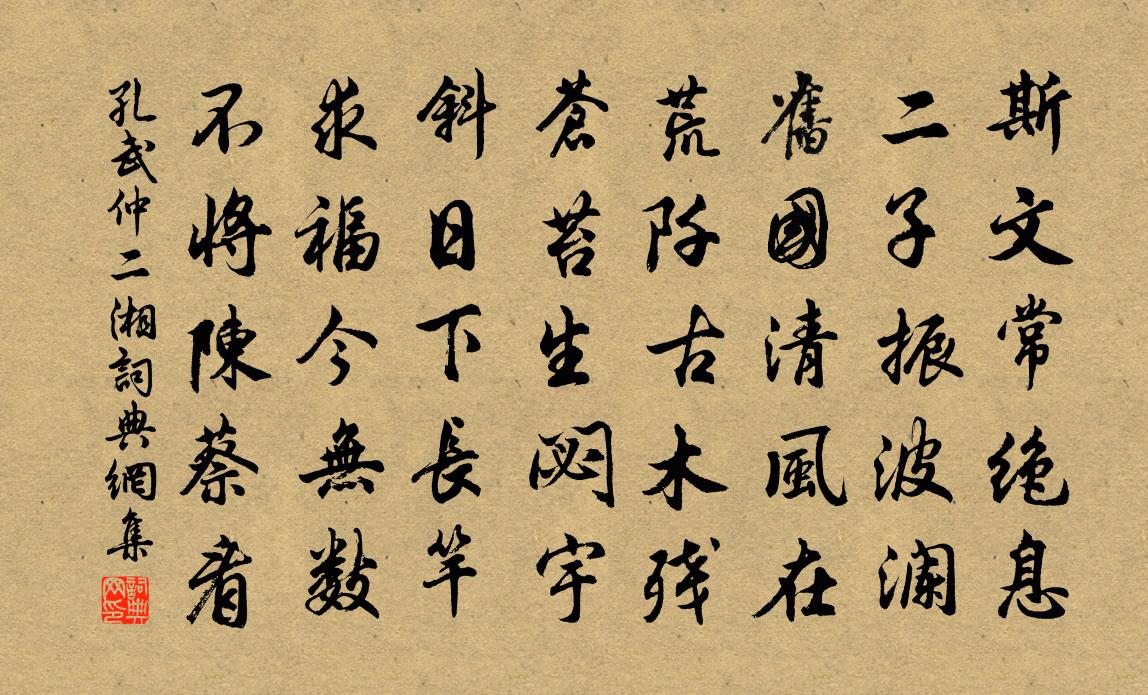 斯文常绝息
二子振波澜
舊國清風在
荒阡古木残
蒼苔生閟宇
斜日下長竿
求福今無數
不將陳蔡看
孔武仲二湘詞典網集
詞典網印